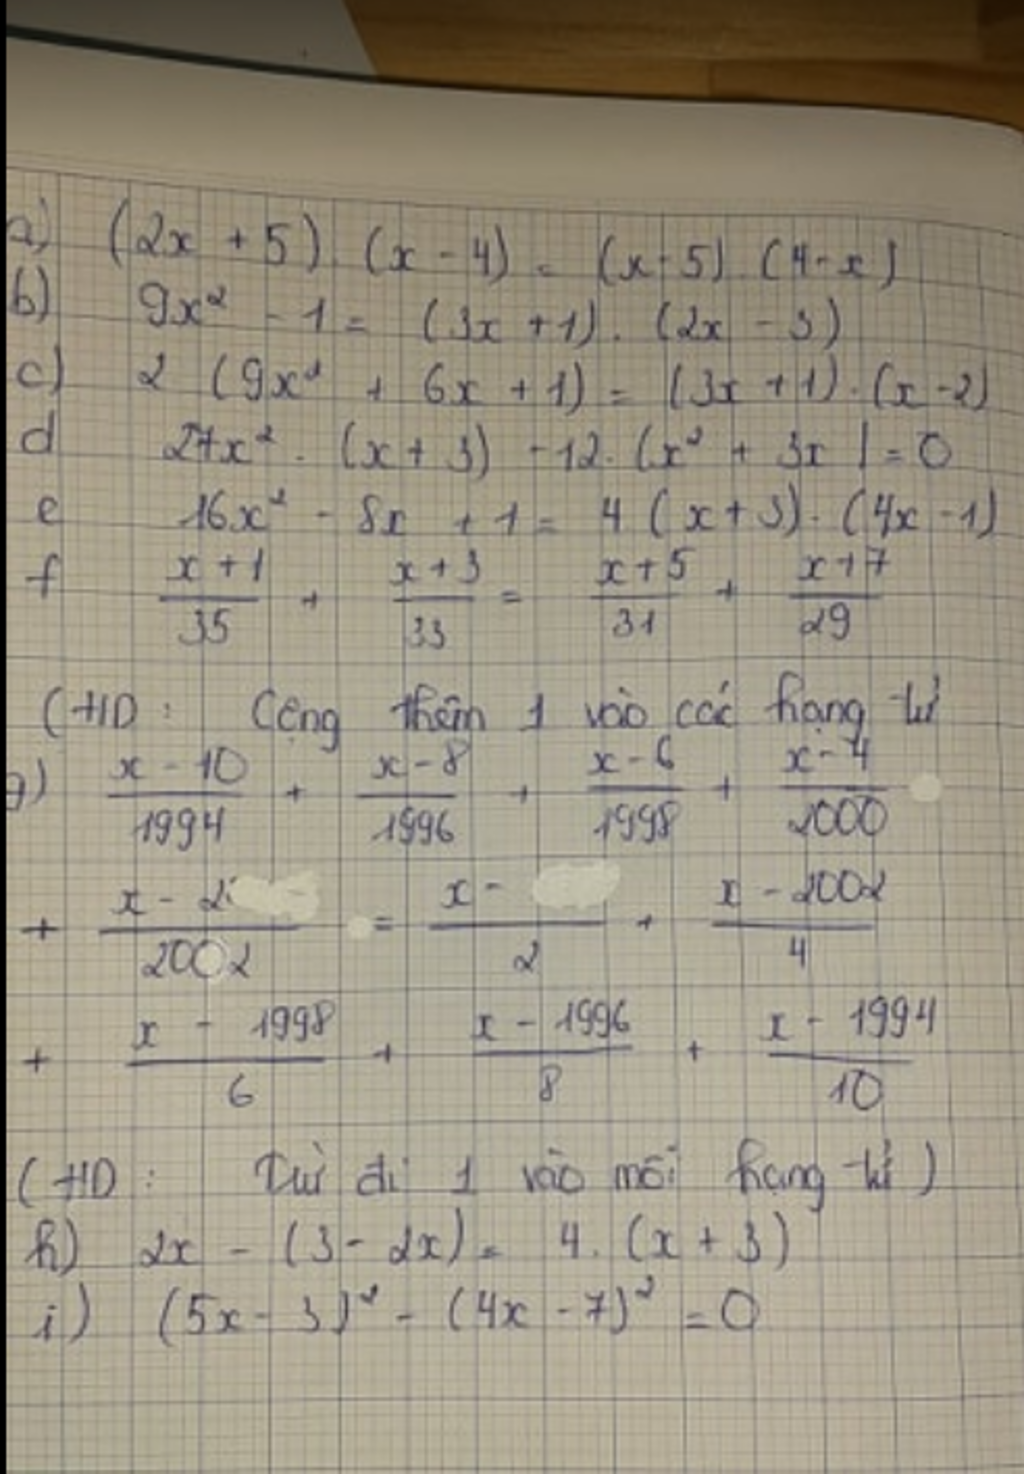 a) (2x + 5) . (x - 4) = (x - 5) . (4 - x)
b) 9x² - 1 = (3x + 1) . (2x - 3)
c) 2 (9x² + 6x + 1) = (3x + 1) . (x - 2)
d 27x² . (x + 3) - 12 . (x² + 3x) = 0
e 16x² - 8x + 1 = 4 (x + 3) . (4x - 1)
f (x + 1)/35 + (x + 3)/33 = (x + 5)/31 + (x + 7)/29
(HD : Cộng thêm 1 vào các hạng tử
g) (x - 10)/1994 + (x - 8)/1996 + (x - 6)/1998 + (x - 4)/2000
+ (x - 2)/2002 = (x - )/2 + (x - 2002)/4
+ (x - 1998)/6 + (x - 1996)/8 + (x - 1994)/10
(HD : Trừ đi 1 vào mỗi hạng tử )
h) 2x - (3 - 2x) = 4 . (x + 3)
i) (5x - 3)² - (4x - 7)² = 0